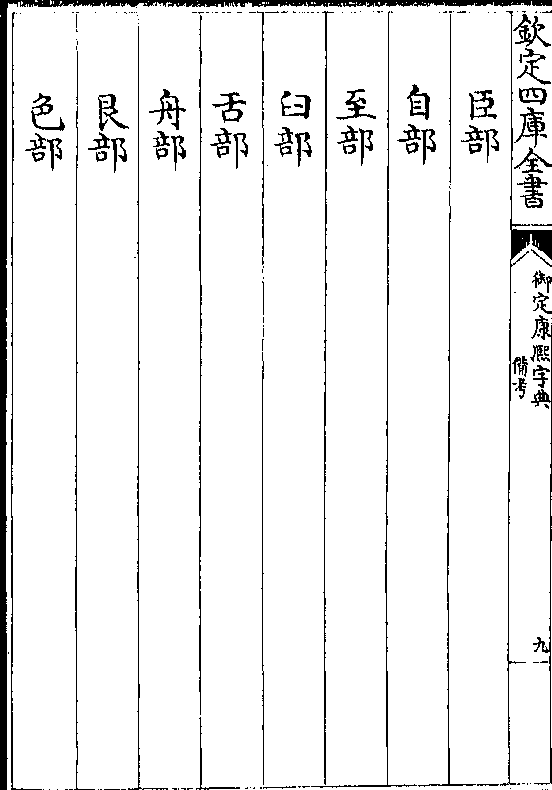 欽定四庫全書
御定康熙字典
備考
九
臣部
自部
至部
臼部
舌部
舟部
艮部
色部